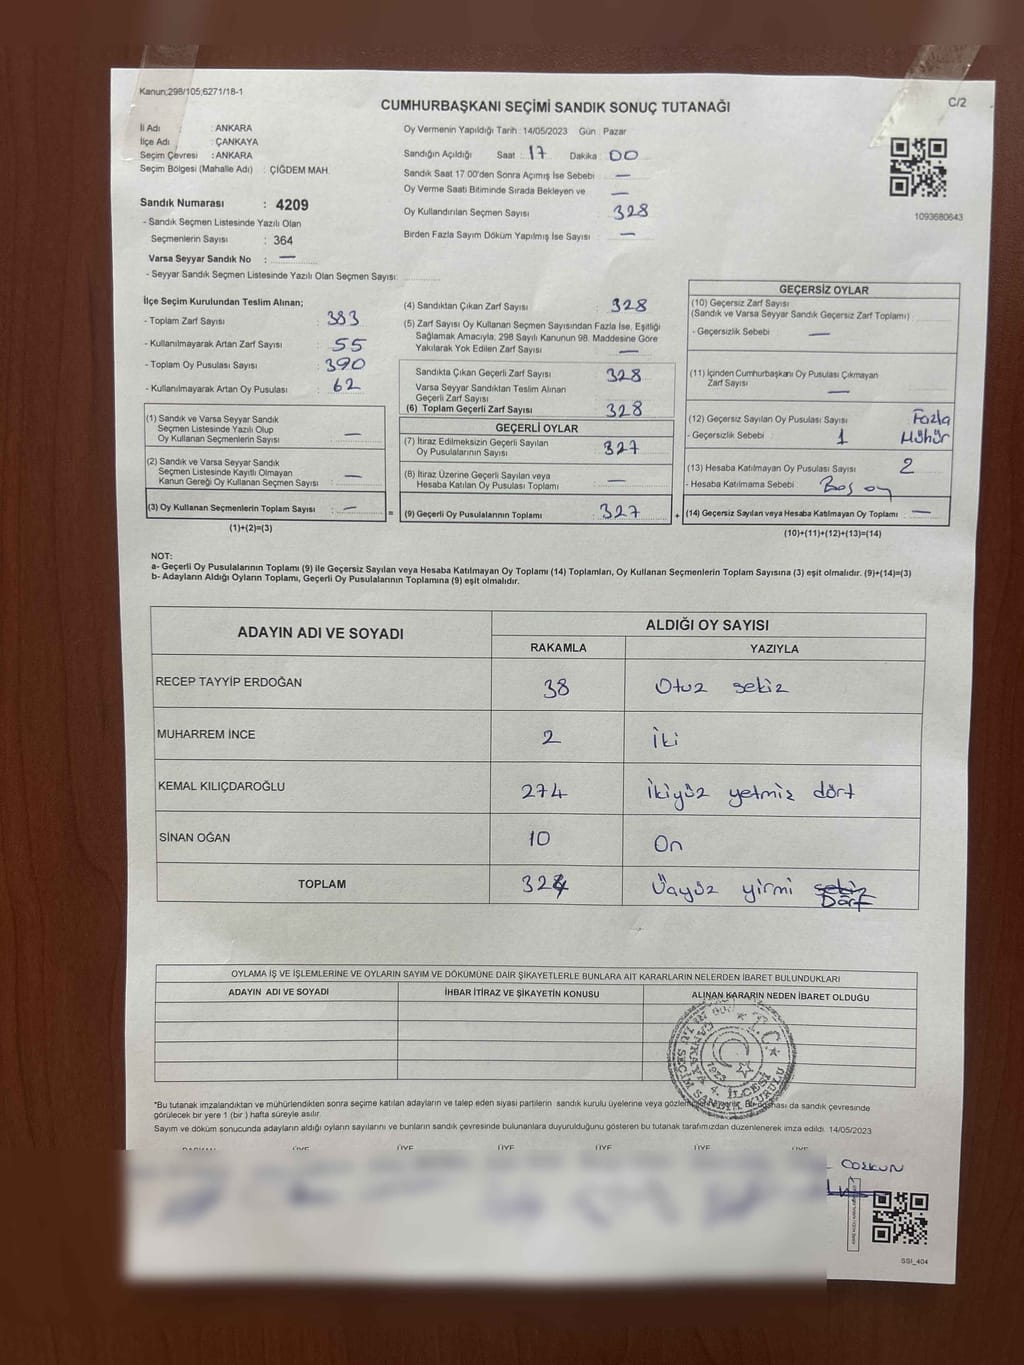 Kanun;298/105;6271/18-1
CUMHURBAŞKANI SEÇİMİ SANDIK SONUÇ TUTANAĞI
C/2
İl Adı : ANKARA
İlçe Adı : ÇANKAYA
Seçim Çevresi : ANKARA
Seçim Bölgesi (Mahalle Adı) : ÇİĞDEM MAH.
Sandık Numarası : 4209
- Sandık Seçmen Listesinde Yazılı Olan
Seçmenlerin Sayısı : 364
Varsa Seyyar Sandık No : —
- Seyyar Sandık Seçmen Listesinde Yazılı Olan Seçmen Sayısı:
Oy Vermenin Yapıldığı Tarih : 14/05/2023 Gün : Pazar
Sandığın Açıldığı Saat : 17 Dakika 00
Sandık Saat 17.00'den Sonra Açımış İse Sebebi : —
Oy Verme Saati Bitiminde Sırada Bekleyen ve —
Oy Kullandırılan Seçmen Sayısı : 328
Birden Fazla Sayım Döküm Yapılmış İse Sayısı : —
1093680643
İlçe Seçim Kurulundan Teslim Alınan;
- Toplam Zarf Sayısı : 383
- Kullanılmayarak Artan Zarf Sayısı : 55
- Toplam Oy Pusulası Sayısı : 390
- Kullanılmayarak Artan Oy Pusulası : 62
(1) Sandık ve Varsa Seyyar Sandık
Seçmen Listesinde Yazılı Olup
Oy Kullanan Seçmenlerin Sayısı : —
(2) Sandık ve Varsa Seyyar Sandık
Seçmen Listesinde Kayıtlı Olmayan
Kanun Gereği Oy Kullanan Seçmen Sayısı : —
(3) Oy Kullanan Seçmenlerin Toplam Sayısı : —
(1)+(2)=(3)
=
(4) Sandıktan Çıkan Zarf Sayısı : 328
(5) Zarf Sayısı Oy Kullanan Seçmen Sayısından Fazla İse, Eşitliği
Sağlamak Amacıyla, 298 Sayılı Kanunun 98. Maddesine Göre
Yakılarak Yok Edilen Zarf Sayısı : —
Sandıkta Çıkan Geçerli Zarf Sayısı : 328
Varsa Seyyar Sandıktan Teslim Alınan
Geçerli Zarf Sayısı : —
(6) Toplam Geçerli Zarf Sayısı : 328
GEÇERLİ OYLAR
(7) İtiraz Edilmeksizin Geçerli Sayılan
Oy Pusulalarının Sayısı : 327
(8) İtiraz Üzerine Geçerli Sayılan veya
Hesaba Katılan Oy Pusulası Toplamı : —
(9) Geçerli Oy Pusulalarının Toplamı : 327
+
GEÇERSİZ OYLAR
(10) Geçersiz Zarf Sayısı
(Sandık ve Varsa Seyyar Sandık Geçersiz Zarf Toplamı)
- Geçersizlik Sebebi : —
(11) İçinden Cumhurbaşkanı Oy Pusulası Çıkmayan
Zarf Sayısı : —
(12) Geçersiz Sayılan Oy Pusulası Sayısı : Fazla
- Geçersizlik Sebebi : 1 Mühür
(13) Hesaba Katılmayan Oy Pusulası Sayısı : 2
- Hesaba Katılmama Sebebi : Boş oy
(14) Geçersiz Sayılan veya Hesaba Katılmayan Oy Toplamı : —
(10)+(11)+(12)+(13)=(14)
NOT:
a- Geçerli Oy Pusulalarının Toplamı (9) ile Geçersiz Sayılan veya Hesaba Katılmayan Oy Toplamı (14) Toplamları, Oy Kullanan Seçmenlerin Toplam Sayısına (3) eşit olmalıdır. (9)+(14)=(3)
b- Adayların Aldığı Oyların Toplamı, Geçerli Oy Pusulalarının Toplamına (9) eşit olmalıdır.
ADAYIN ADI VE SOYADI ALDIĞI OY SAYISI
RAKAMLA YAZIYLA
RECEP TAYYİP ERDOĞAN 38 Otuz sekiz
MUHARREM İNCE 2 İki
KEMAL KILIÇDAROĞLU 274 İkiyüz yetmiş dört
SİNAN OĞAN 10 On
TOPLAM 324 Üçyüz yirmi sekiz Dört
OYLAMA İŞ VE İŞLEMLERİNE VE OYLARIN SAYIM VE DÖKÜMÜNE DAİR ŞİKAYETLERLE BUNLARA AİT KARARLARIN NELERDEN İBARET BULUNDUKLARI
ADAYIN ADI VE SOYADI İHBAR İTİRAZ VE ŞİKAYETİN KONUSU ALINAN KARARIN NEDEN İBARET OLDUĞU
T.C. ÇANKAYA 4. İLÇESİ 1923 SANDIK KURULU
*Bu tutanak imzalandıktan ve mühürlendikten sonra seçime katılan adayların ve talep eden siyasi partilerin sandık kurulu üyelerine veya da sandık çevresinde
görülecek bir yere 1 (bir ) hafta süreyle asılır.
Sayım ve döküm sonucunda adayların aldığı oyların sayılarını ve bunların sandık çevresinde bulunanlara duyurulduğunu gösteren bu tutanak tarafımızdan düzenlenerek imza edildi. 14/05/2023
BAŞKAN ÜYE ÜYE ÜYE ÜYE ÜYE ÜYE
COŞKUN
SSI_404